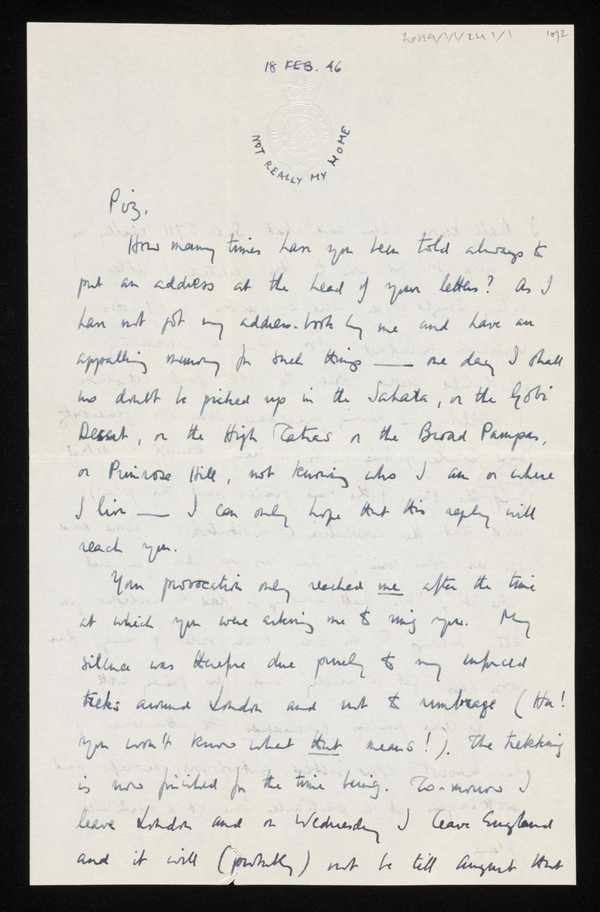 20189/1/1/221/1
1of2
18 FEB. 46
NOT REALLY MY HOME
Piz,
How many times have you been told always to
put an address at the head of your letters? As I
have not got my address-book by me and have an
appalling memory for such things — one day I shall
no doubt be picked up in the Sahara, or the Gobi
Desert, or the High Tatras or the Broad Pampas,
or Primrose Hill, not knowing who I am or where
I live — I can only hope that this reply will
reach you.
Your provocation only reached me after the time
at which you were asking me to ring you. My
silence was therefore due purely to my enforced
treks around London and not to umbrage (Ha!
You won't know what that means!). The trekking
is now finished for the time being. To-morrow I
leave London and on Wednesday I leave England
and it will (probably) not be till August that